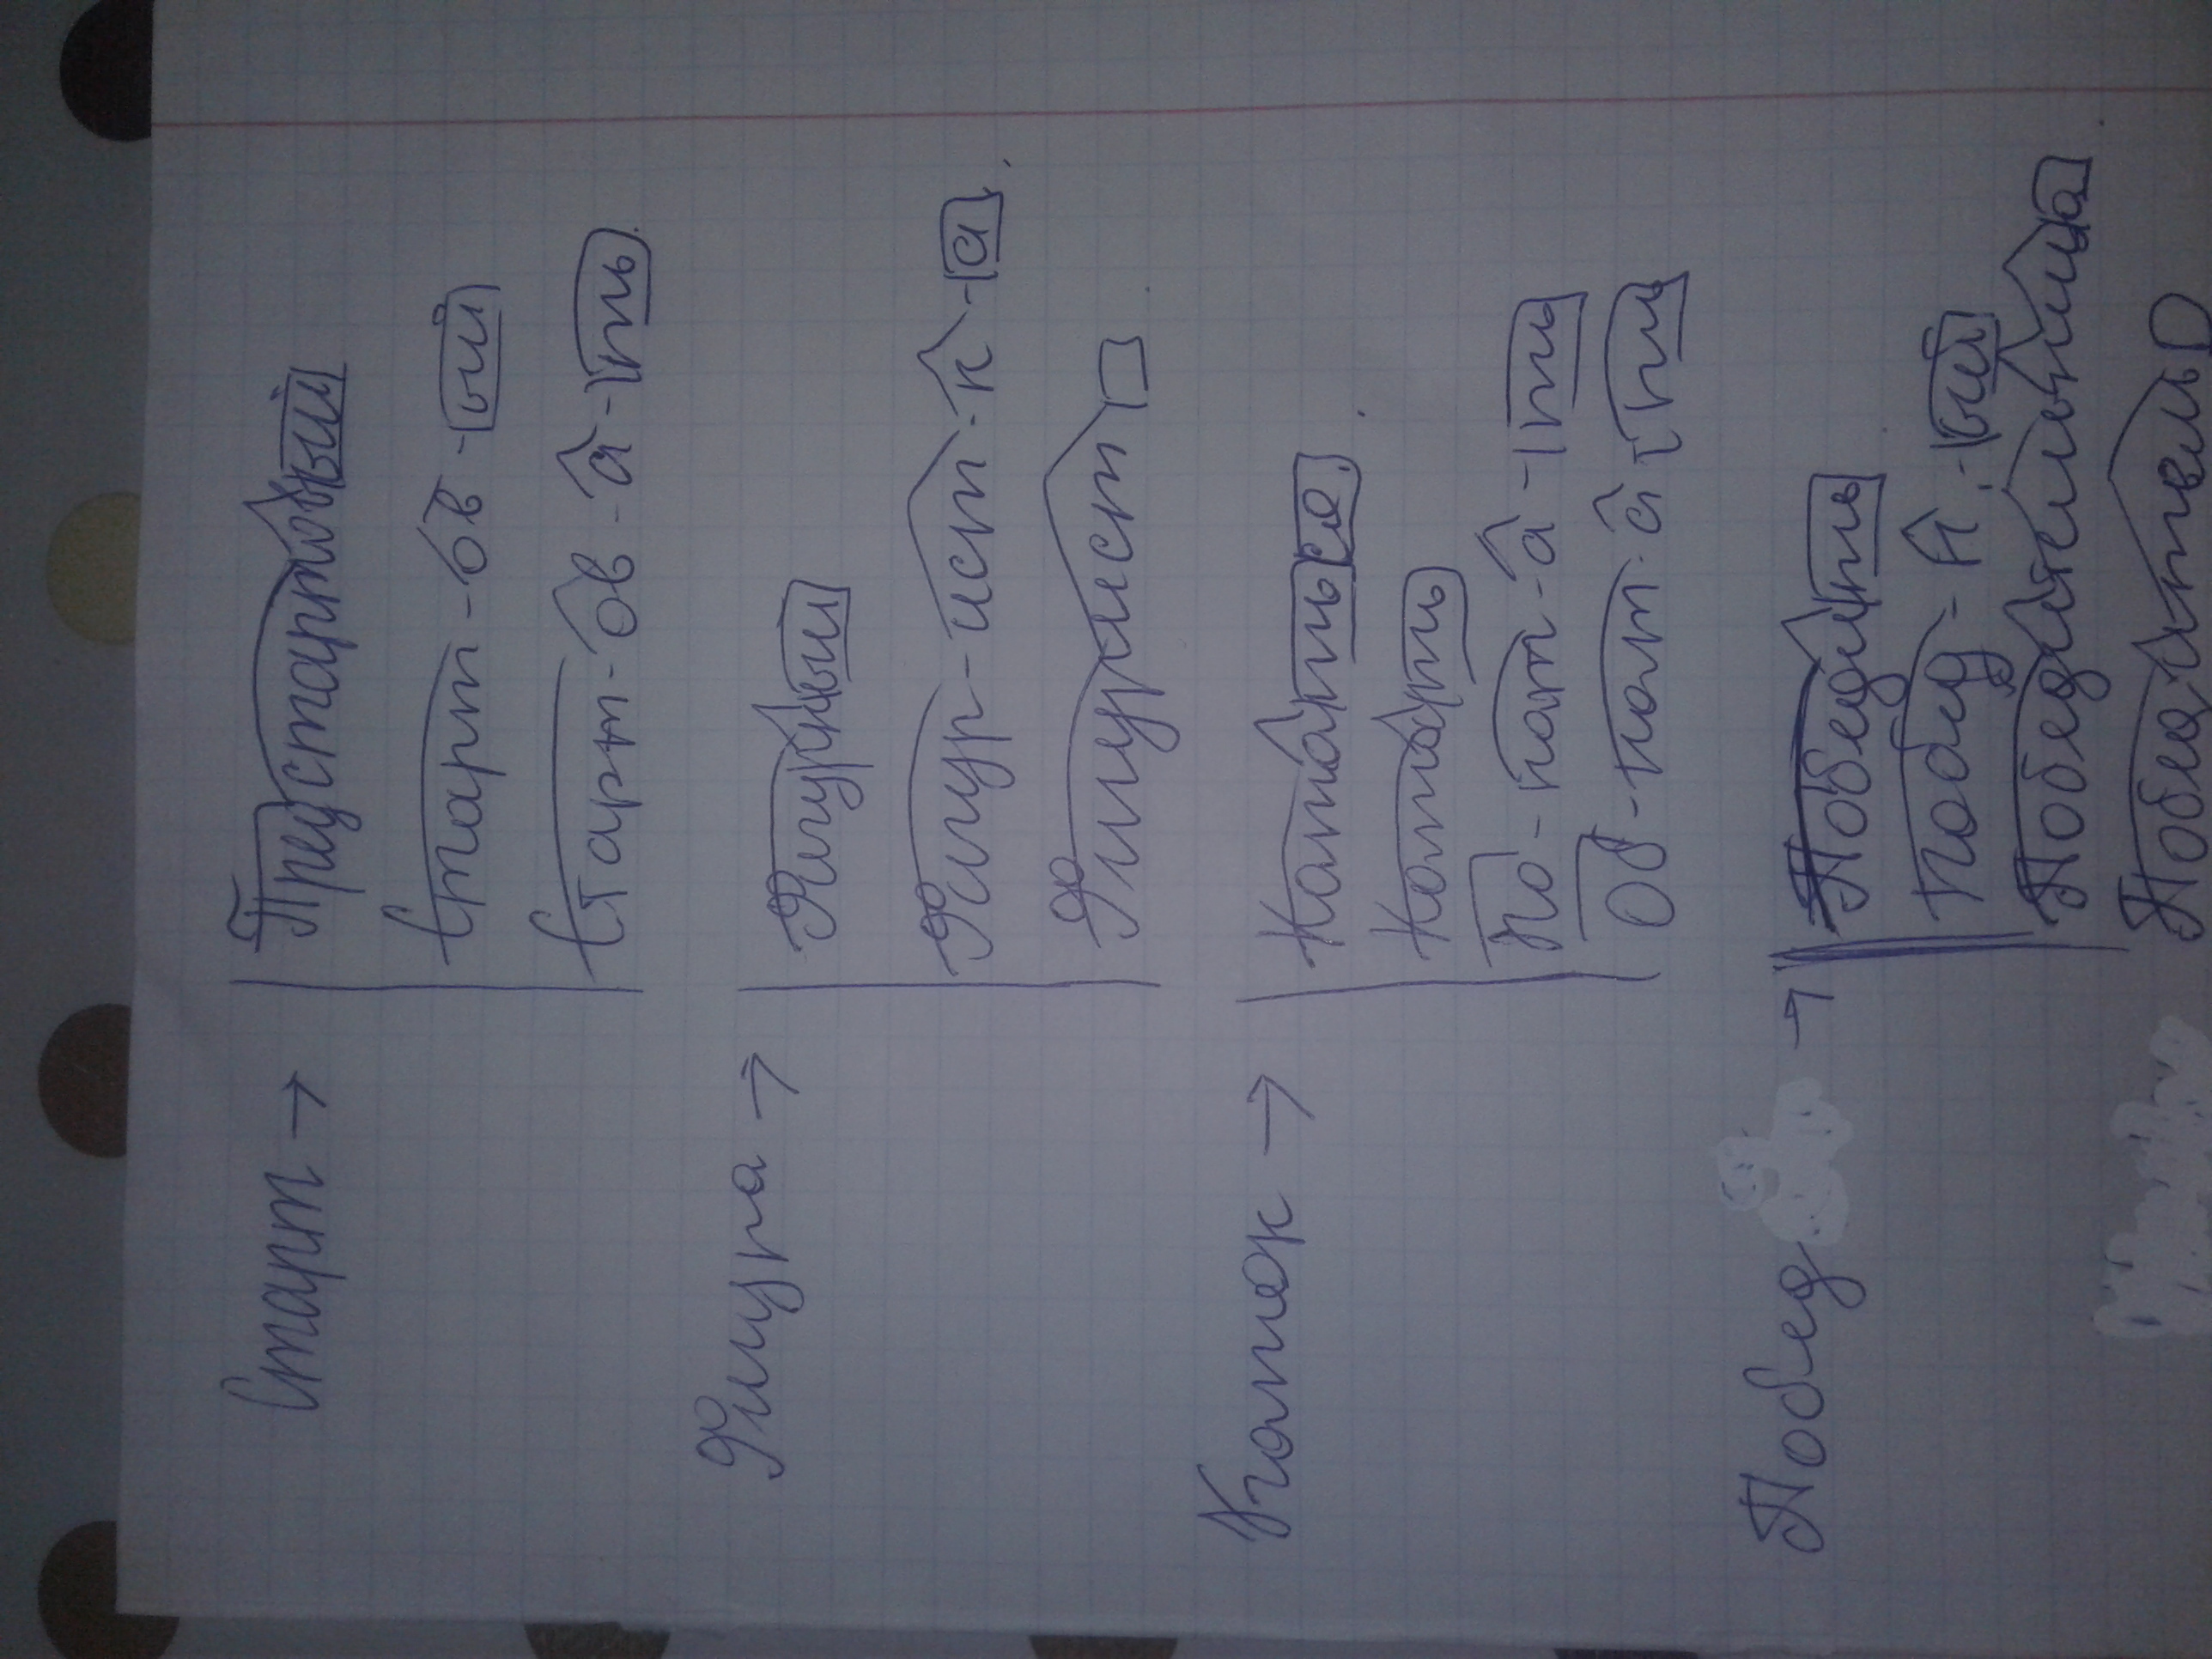 Старт → Предстартовый
Старт-ов-ый
Старт-ов-а-ть.
Фигура → Фигурный
Фигур-ист-к-а.
Фигурист
Каток → Кататься.
Катать
По-кат-а-ть
Об-кат-а-ть
Побед → Победить
Побед-н-ый
Победительница
Победитель